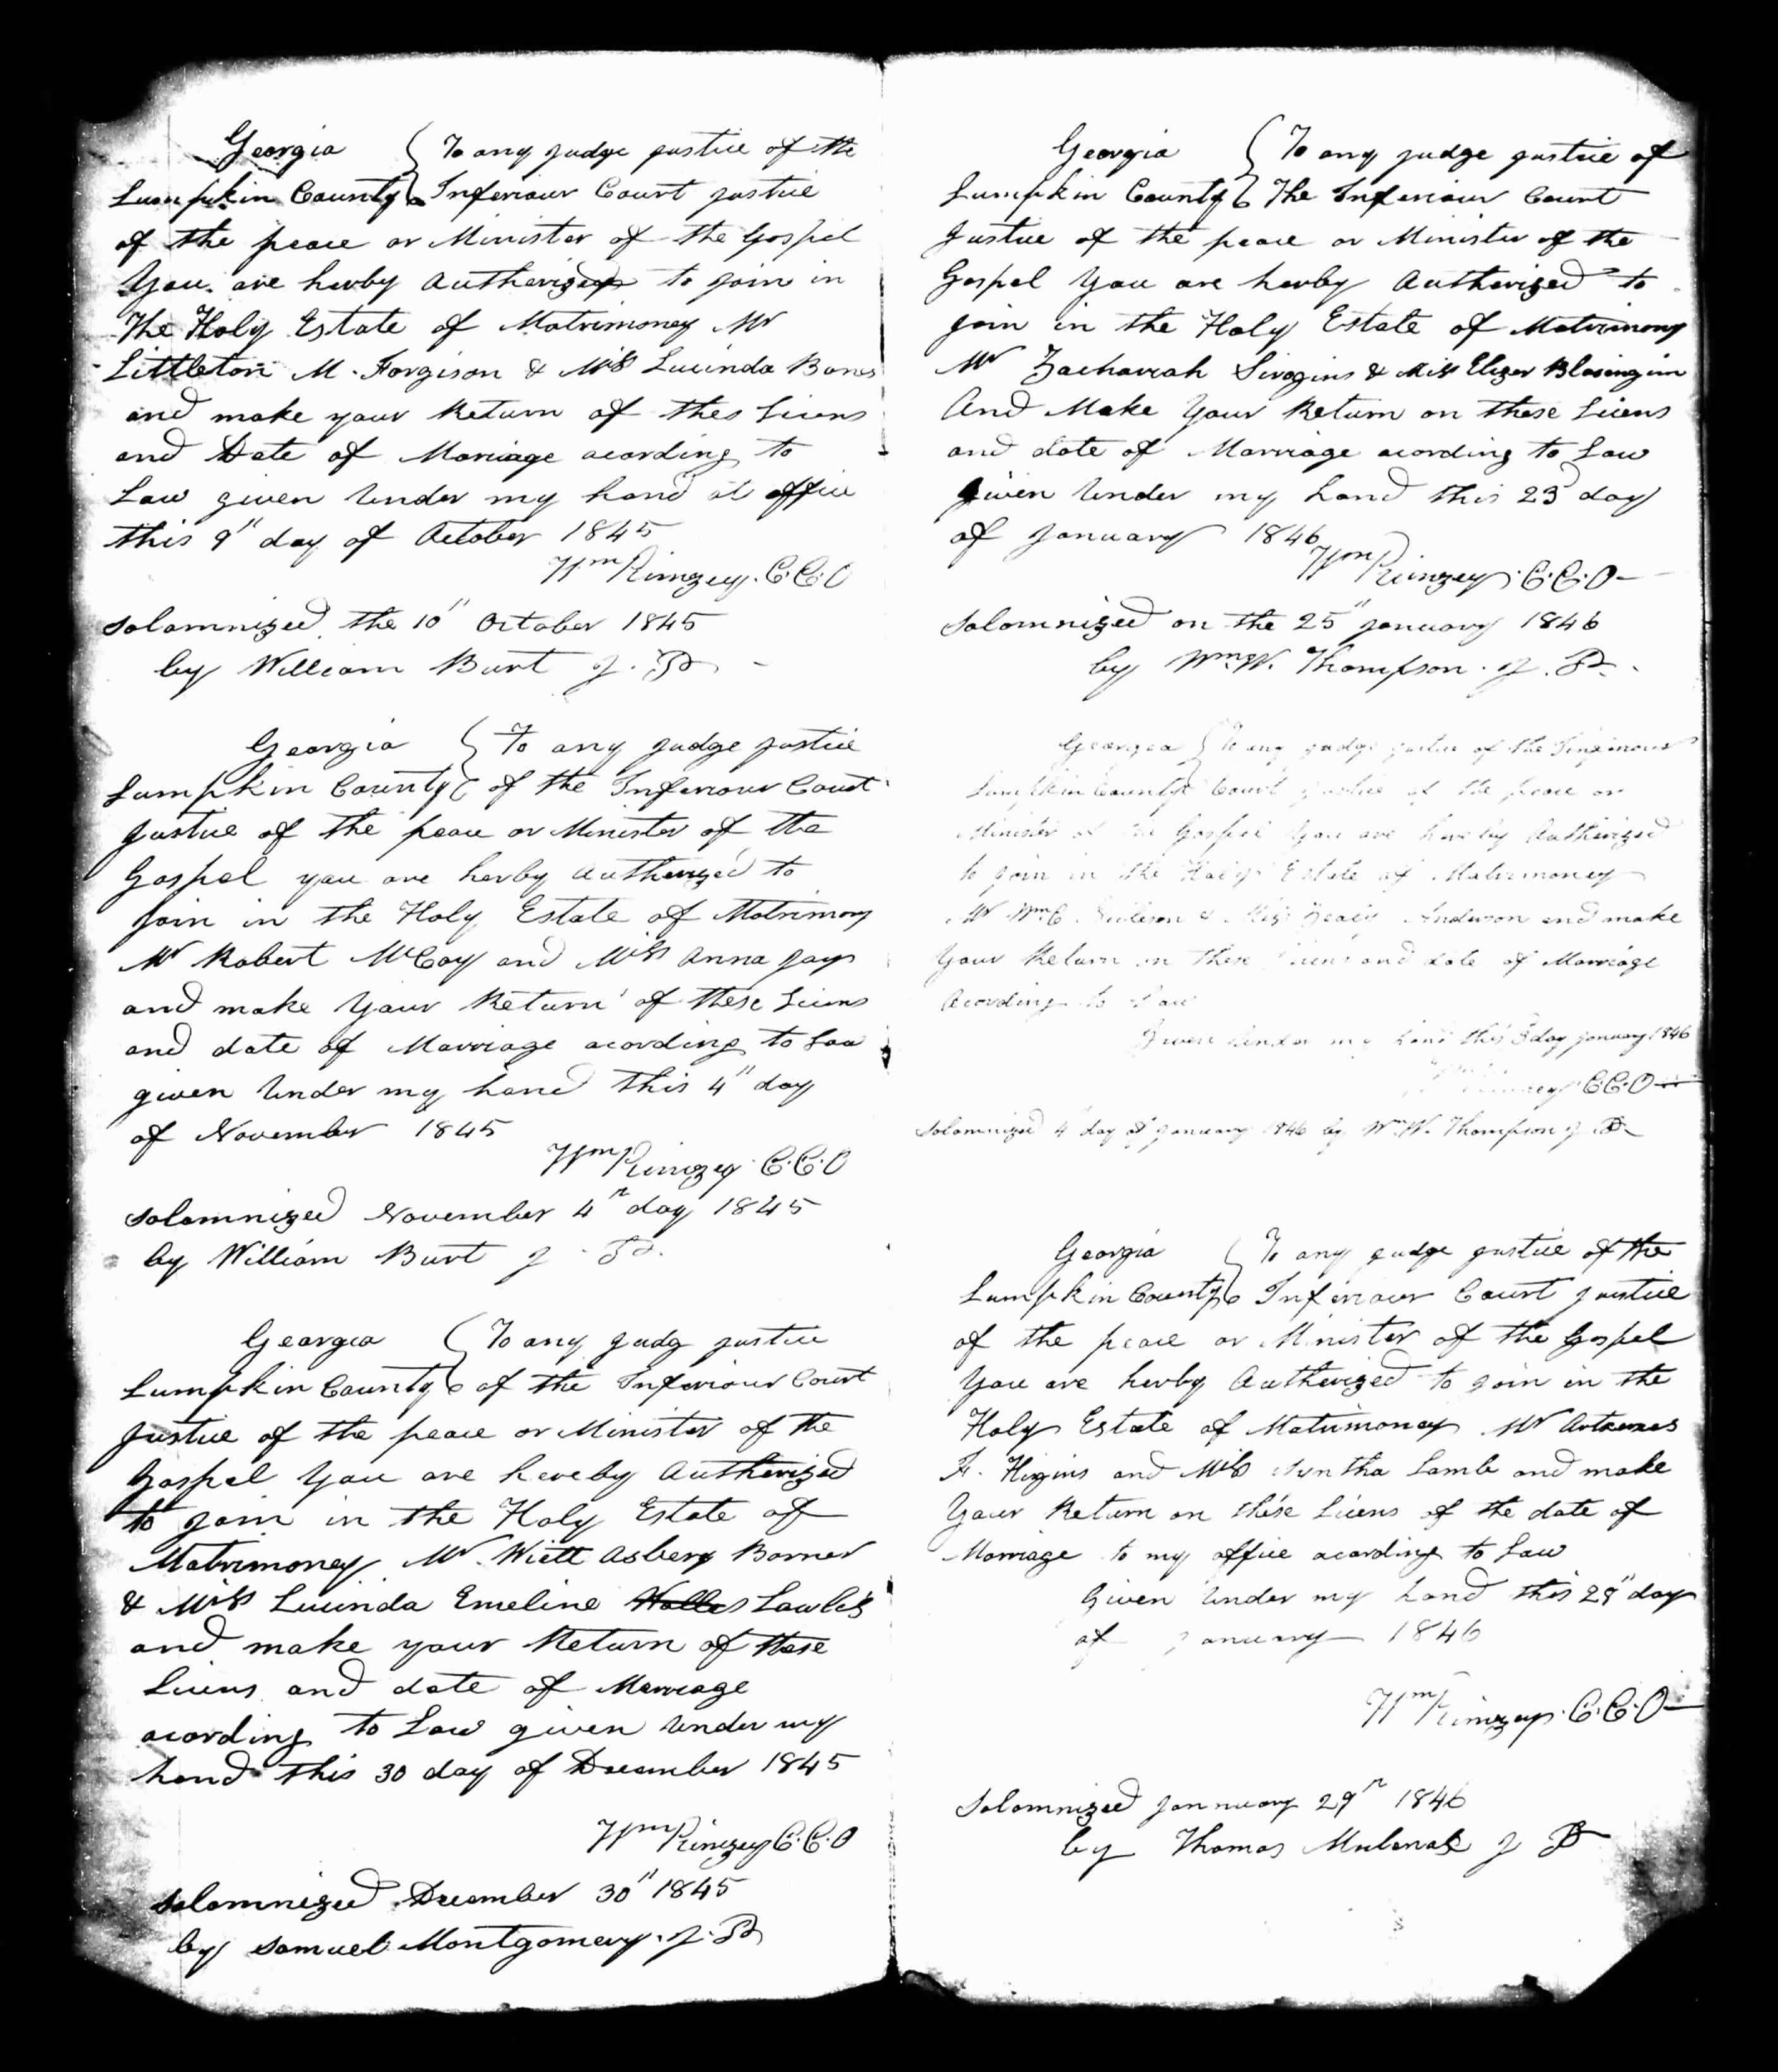 Georgia } To any judge justice of the
Lumpkin County } Inferiour Court justice
of the peace or Minister of the Gospel
You are herby Autherized to join in
The Holy Estate of Matrimoney Mr
Littleton M. Forgison & Miss Lucinda Bones
and make your Return of thes Licens
and Date of Marriage acording to
Law given Under my hand at office
this 9" day of October 1845
Wm Kimzey. C.C.O
Solomnized the 10" October 1845
by William Burt J. P.
Georgia } To any judge justice
Lumpkin County } of the Inferiour Court
justice of the peace or Minister of the
Gospel you are herby Autherized to
join in the Holy Estate of Matrimony
Mr Robert McCoy and Miss Anna Jay
and make Your Return of these Licens
and date of Marriage acording to Law
given Under my hand this 4" day
of November 1845
Wm Kimzey C.C.O
Solomnized November 4th day 1845
by William Burt J. P.
Georgia } To any judg justice
Lumpkin County } of the Inferiour Court
justice of the peace or Minister of the
Gospel You are hereby Autherized
to join in the Holy Estate of
Matrimoney Mr. Wiett Asbery Barner
& Miss Lucinda Emeline Lawles
and make your Return of these
Licens and date of Marriage
acording to Law given Under my
hand this 30 day of December 1845
Wm Kimzey C.C.O
Solomnized December 30" 1845
by Samuel Montgomery. J. P.
Georgia } To any judge justice of
Lumpkin County } The Inferiour Court
justice of the peace or Minister of the
Gospel You are herby Autherized to
join in the Holy Estate of Matrimony
Mr Zachariah & Miss Elizer Blasingim
And Make Your Return on these Licens
and date of Marriage acording to Law
given Under my hand this 23d day
of January 1846
Wm Kimzey. C.C.O
Solomnized on the 25" January 1846
by Wm. W. Thompson. J. P.
Georgia } To any judge justice of the Inferiour
Lumpkin County } Court justice of the peace or
Minister of the Gospel You are hereby Autherized
to join in the Holy Estate of Matrimoney
Mr Wm C. & Miss Anderson and make
Your Return on these Licens and date of Marriage
acording to Law
Given Under my hand this 3 day January 1846
Wm Kimzey C.C.O
Solomnized 4 day of January 1846 by Wm. W. Thompson J. P.
Georgia } To any judge justice of the
Lumpkin County } Inferiour Court justice
of the peace or Minister of the Gospel
You are herby Autherized to join in the
Holy Estate of Matrimoney Mr
F. Higgins and Miss Lamb and make
Your Return on these Licens of the date of
Marriage to my office acording to Law
Given Under my hand this 29" day
of January 1846
Wm Kimzey. C.C.O
Solomnized Jannuary 29th 1846
by Thomas J P